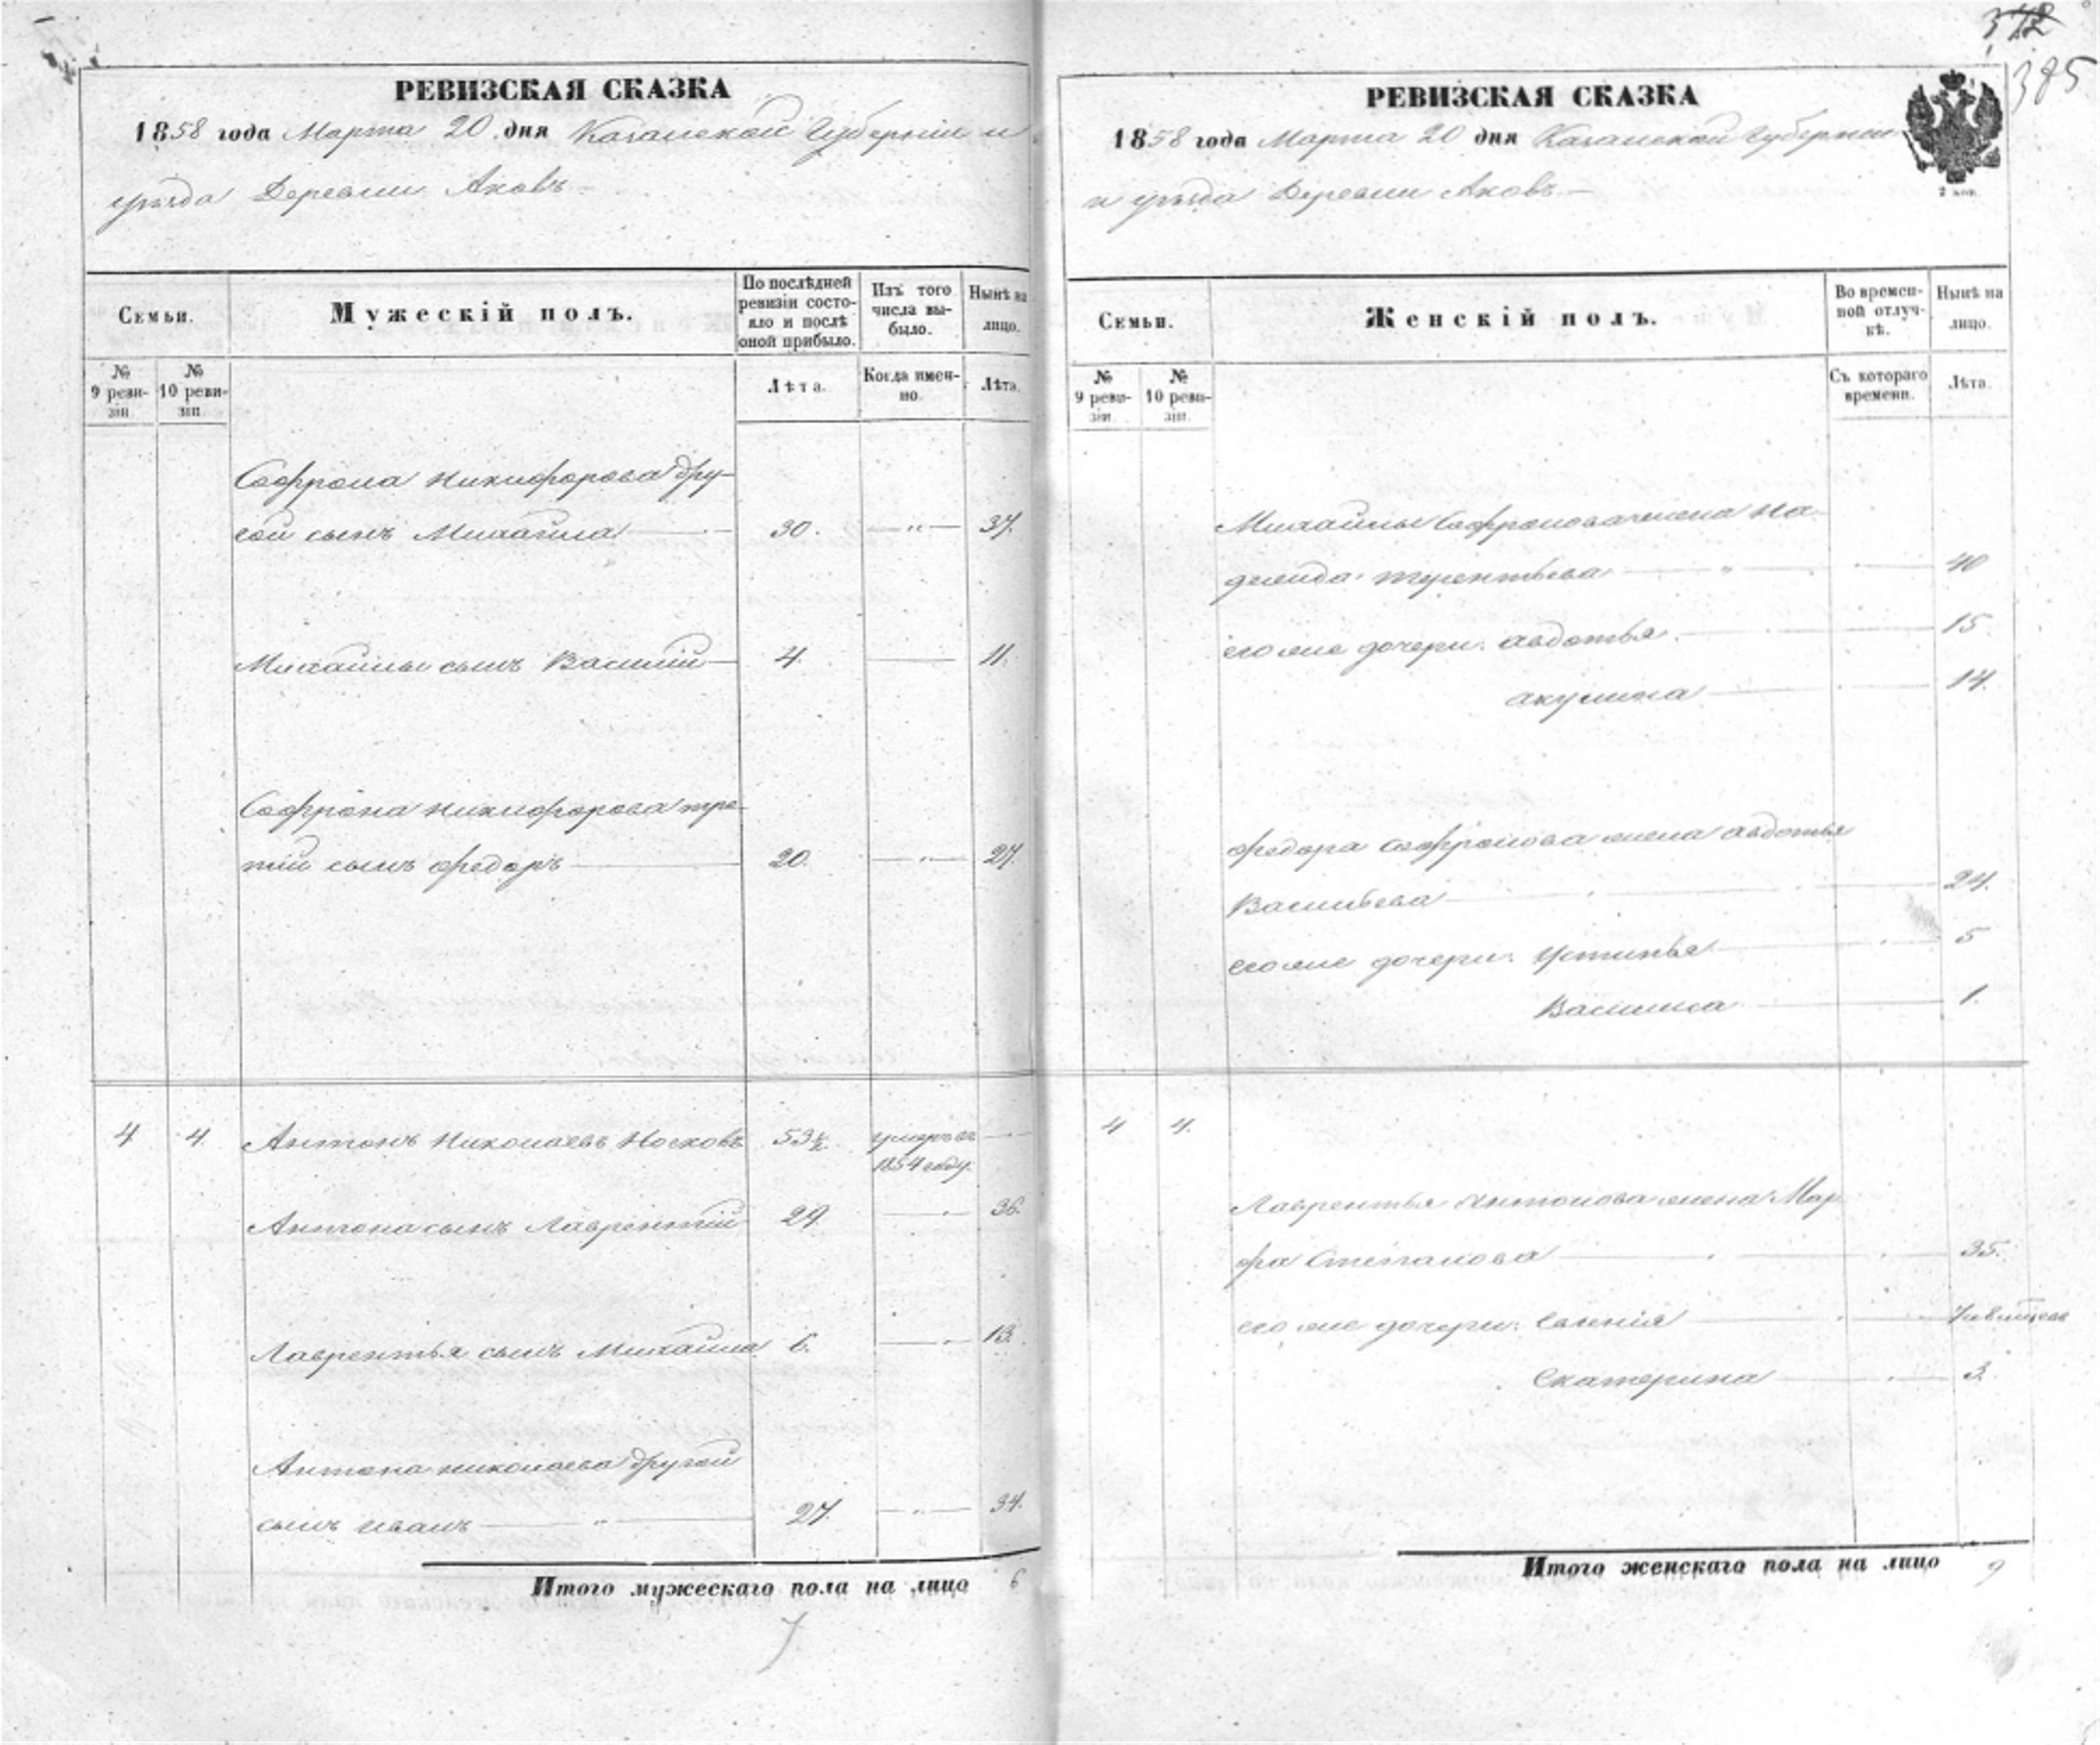 РЕВИЗСКАЯ СКАЗКА
1858 года Марта 20 дня Казанской Губернии и
уѣзда Деревни Аковъ
Семьи.
Мужескій полъ.
По послѣдней ревизіи состояло и послѣ оной прибыло.
Изъ того числа выбыло.
Нынѣ на лицо.
№ 9 ревизіи
№ 10 ревизіи
Лѣта.
Когда именно.
Лѣта.
Софрона Никифорова дру-
гой сынъ Михайла 30. 37.
Михайлы сынъ Василій 4. 11.
Софрона Никифорова тре-
тій сынъ Федоръ 20. 27.
4 4. Антонъ Николаевъ Носковъ 53½ умеръ въ
1854 году.
Антона сынъ Лаврентій 29. 36.
Лаврентья сынъ Михайла 6. 13.
Антона Николаева другой
сынъ Иванъ 27. 34.
Итого мужескаго пола на лицо 6
7
372
385
РЕВИЗСКАЯ СКАЗКА
1858 года Марта 20 дня Казанской Губернии
и уѣзда Деревни Аковъ
2 коп.
Семьи.
Женскій полъ.
Во временной отлучкѣ.
Нынѣ на лицо.
№ 9 ревизіи.
№ 10 ревизіи.
Съ котораго времени.
Лѣта.
Михайлы Софронова жена На-
дежда Терентьева 40
его же дочери: Авдотья 15
Акулина 14.
Федора Софронова жена Авдотья
Васильева 24.
его же дочери: Устинья 5
Василиса 1.
4 4.
Лаврентья Антонова жена Мар
фа Степанова 35.
его же дочери: Евгенія
Екатерина 3.
Итого женскаго пола на лицо 9